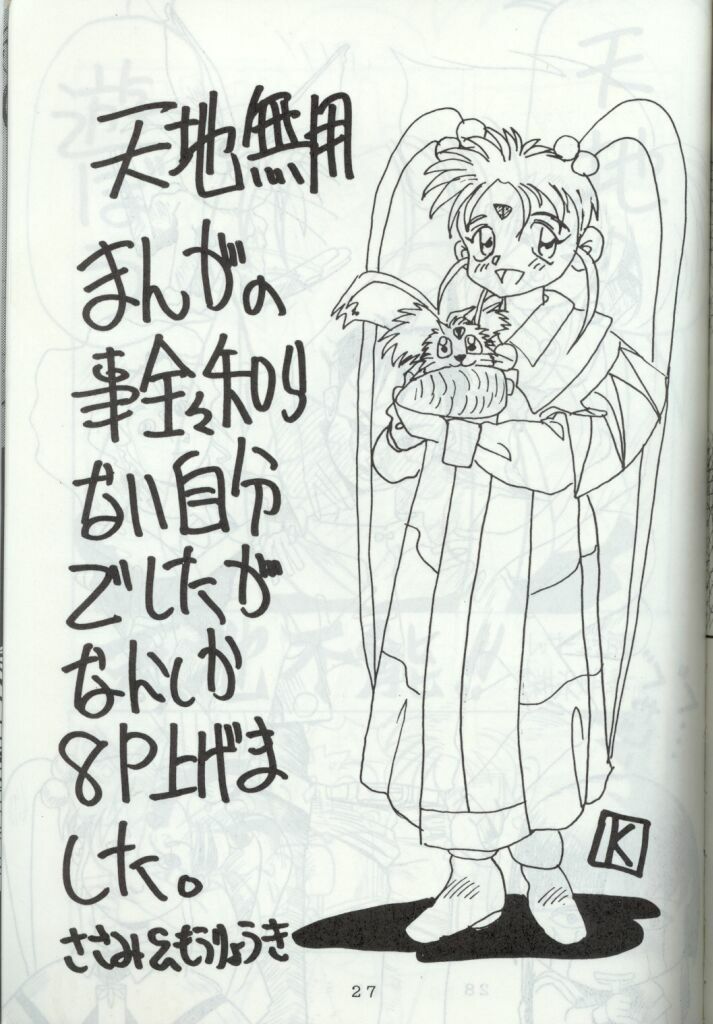 天地無用
まんがの
事全々知り
ない自分
でしたが
なんしか
8P上げま
した。
ささみ&もうりょうき
K
27